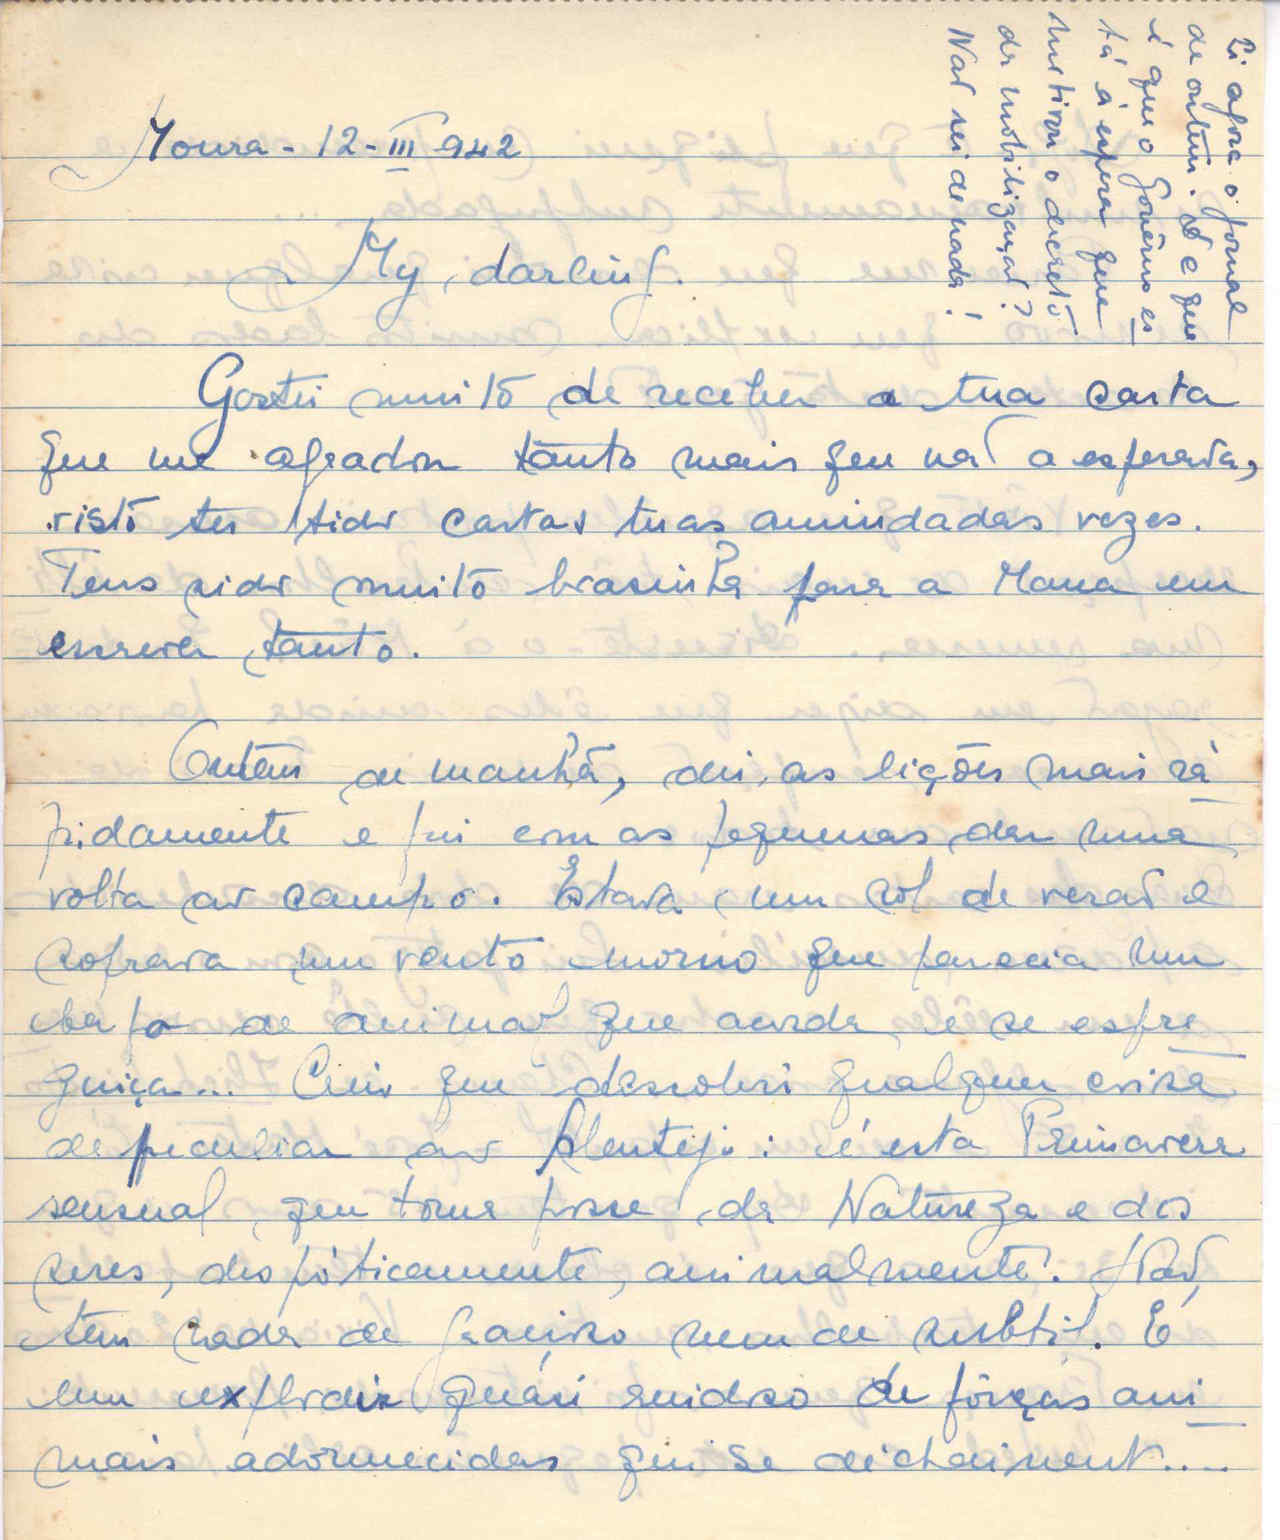 Moura - 12 - III 942
Li agora o jornal
de ontem. E que
é que o Govêrno es
tá à espera que
retirou o decreto
da mobilização?
Não sei de nada!
My darling.
Gostei muito de receber a tua carta
que me agradou tanto mais que não a esperava,
visto ter tido cartas tuas amiudadas vezes.
Tens sido muito brasinha para a Mana em
escrever tanto.
Ontem de manhã, dei as lições mais rá
pidamente e fui com as pequenas dar uma
volta ao campo. Estava um sol de verão e
soprava um vento morno que parecia um
bafo de animal que acorda e se espre
guiça... Creio que descobri qualquer coisa
de peculiar ao Alentejo: é esta Primavera
sensual, que toma posse da Natureza e dos
seres, despòticamente, animalmente. Não
tem nada de gracioso nem de subtil. É
um explodir quási ruidoso de fôrças ani
mais adormecidas qui se déchainent....